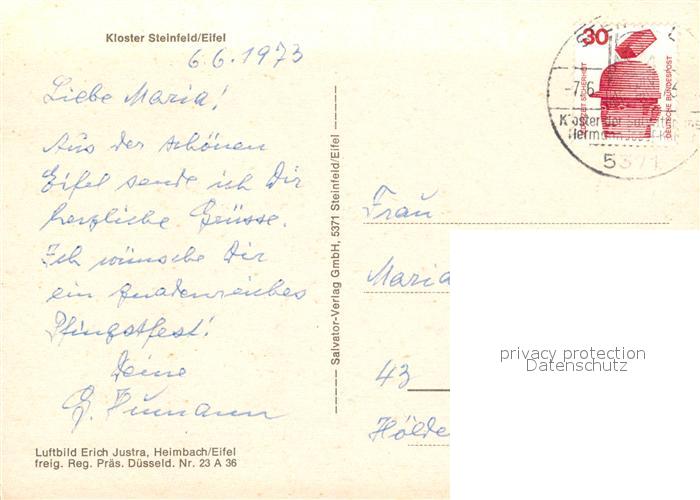 Kloster Steinfeld/Eifel
6.6.1973
Liebe Maria!
Aus der schönen
Eifel sende ich Dir
herzliche Grüsse.
Ich wünsche Dir
ein gnadenreiches
Pfingstfest!
Deine
Luftbild Erich Justra, Heimbach/Eifel
freig. Reg. Präs. Düsseld. Nr. 23 A 36
Salvator-Verlag GmbH, 5371 Steinfeld/Eifel
30
DEUTSCHE BUNDESPOST
5371
Frau
Maria
43
privacy protection
Datenschutz